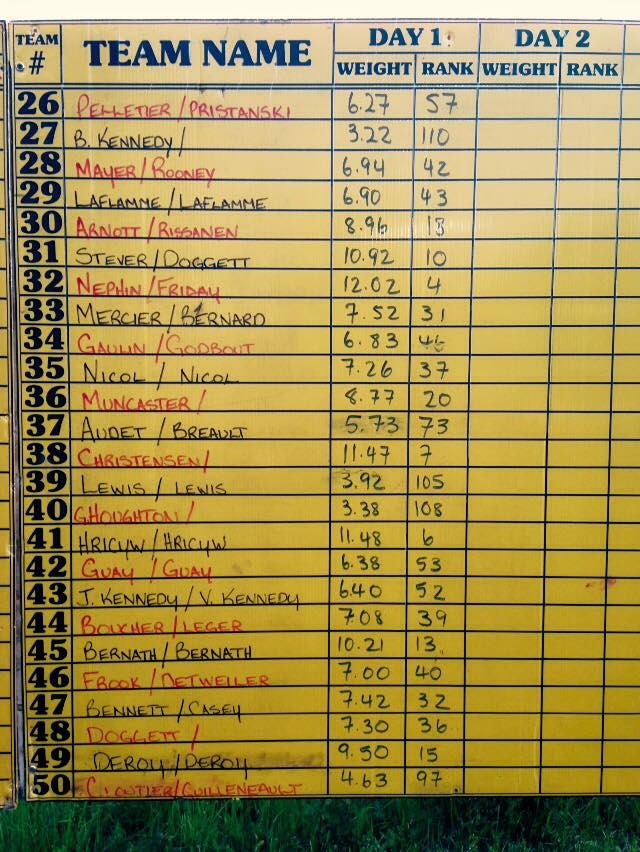 TEAM # TEAM NAME DAY 1 DAY 2
WEIGHT RANK WEIGHT RANK
26 PELLETIER / PRISTANSKI 6.27 57
27 B. KENNEDY / 3.22 110
28 MAYER / ROONEY 6.94 42
29 LAFLAMME / LAFLAMME 6.90 43
30 ARNOTT / RISSANEN 8.96
31 STEVER / DOGGETT 10.92 10
32 NEPHIN / FRIDAY 12.02 4
33 MERCIER / BERNARD 7.52 31
34 GAULIN / GODBOUT 6.83 46
35 NICOL / NICOL 7.26 37
36 MUNCASTER / 8.77 20
37 AUDET / BREAULT 5.73 73
38 CHRISTENSEN / 11.47 7
39 LEWIS / LEWIS 3.92 105
40 GHOUGHTON / 3.38 108
41 HRICYW / HRICYW 11.48 6
42 GUAY / GUAY 6.38 53
43 J. KENNEDY / V. KENNEDY 6.40 52
44 BOUCHER / LEGER 7.08 39
45 BERNATH / BERNATH 10.21 13
46 FROOK / DETWEILER 7.00 40
47 BENNETT / CASEY 7.42 32
48 DOGGETT / 7.30 36
49 DEROY / DEROY 9.50 15
50 CLOUTIER / GUILLENEAULT 4.63 97